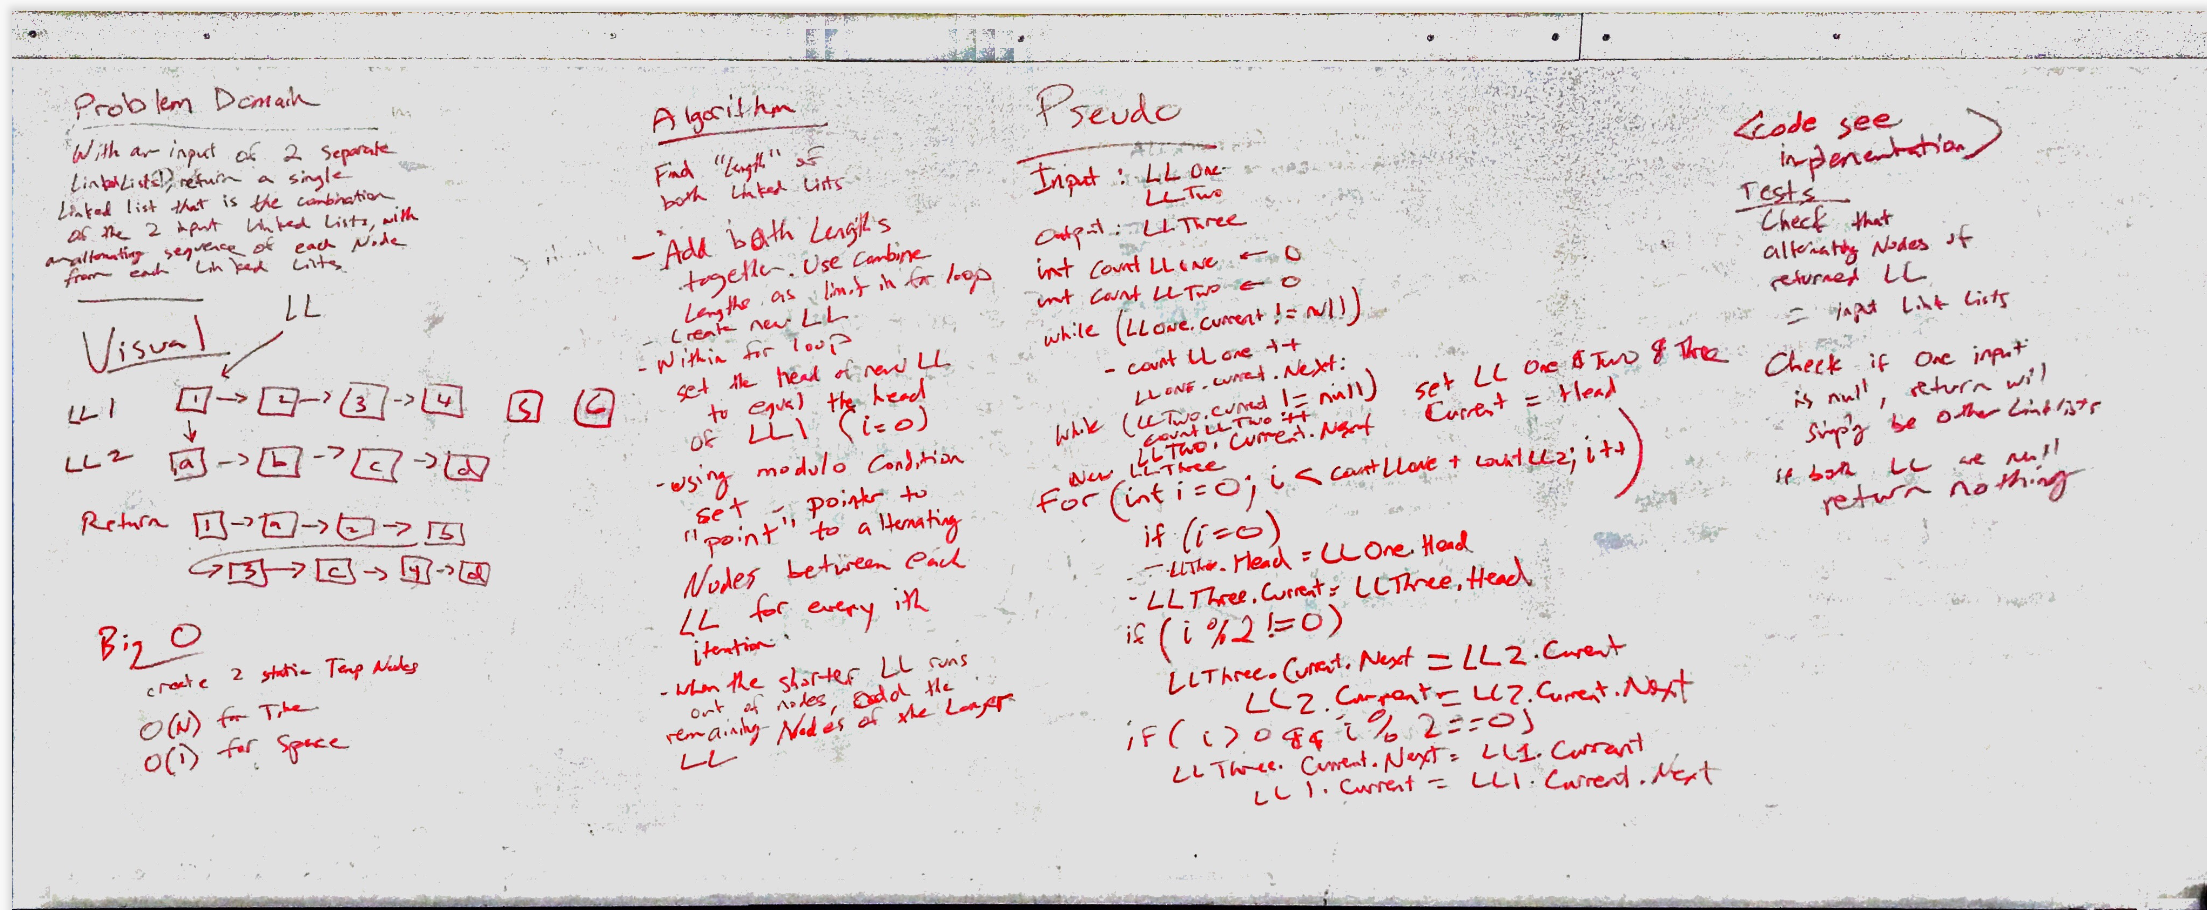 Problem Domain
With an input of 2 separate
Linked Lists, return a single
Linked list that is the combination
of the 2 input Linked Lists, with
an alternating sequence of each Node
from each Linked Lists.
Visual
LL
LL1 1 → 2 → 3 → 4 5 6
LL2 a → b → c → d
Return 1 → a → 2 → b
→ 3 → c → 4 → d
Big O
create 2 static Temp Nodes
O(N) for Time
O(1) for Space
Algorithm
Find "Length" of
both Linked Lists
- Add both Lengths
together. Use combine
Lengths as limit in for loop
- Create new LL
- Within for loop
set the head of new LL
to equal the head
of LL1 (i=0)
- using modulo condition
set - pointer to
"point" to alternating
Nodes between each
LL for every ith
iteration
- when the shorter LL runs
out of nodes, add the
remaining Nodes of the Longer
LL
Pseudo
Input : LL One
LL Two
Output : LL Three
int count LL one ← 0
int count LL Two ← 0
while (LL one.current != null)
- count LL one ++
LL one.current.Next;
while (LL Two.current != null)
count LL Two ++
LL Two.Current.Next
set LL One & Two & Three
Current = Head
New LL Three
For (int i=0; i < count LL one + count LL2; i++)
if (i=0)
- LL Three.Head = LL One.Head
- LL Three.Current = LL Three.Head
if (i %2 !=0)
LL Three.Current.Next = LL2.Current
LL2.Current = LL2.Current.Next
if( i>0 && i % 2==0)
LL Three.Current.Next = LL1.Current
LL1.Current = LL1.Current.Next
<code see
implementation>
Tests
Check that
alternating Nodes of
returned LL
= input Link Lists
Check if one input
is null, return will
simply be other Link lists
if both LL are null
return nothing